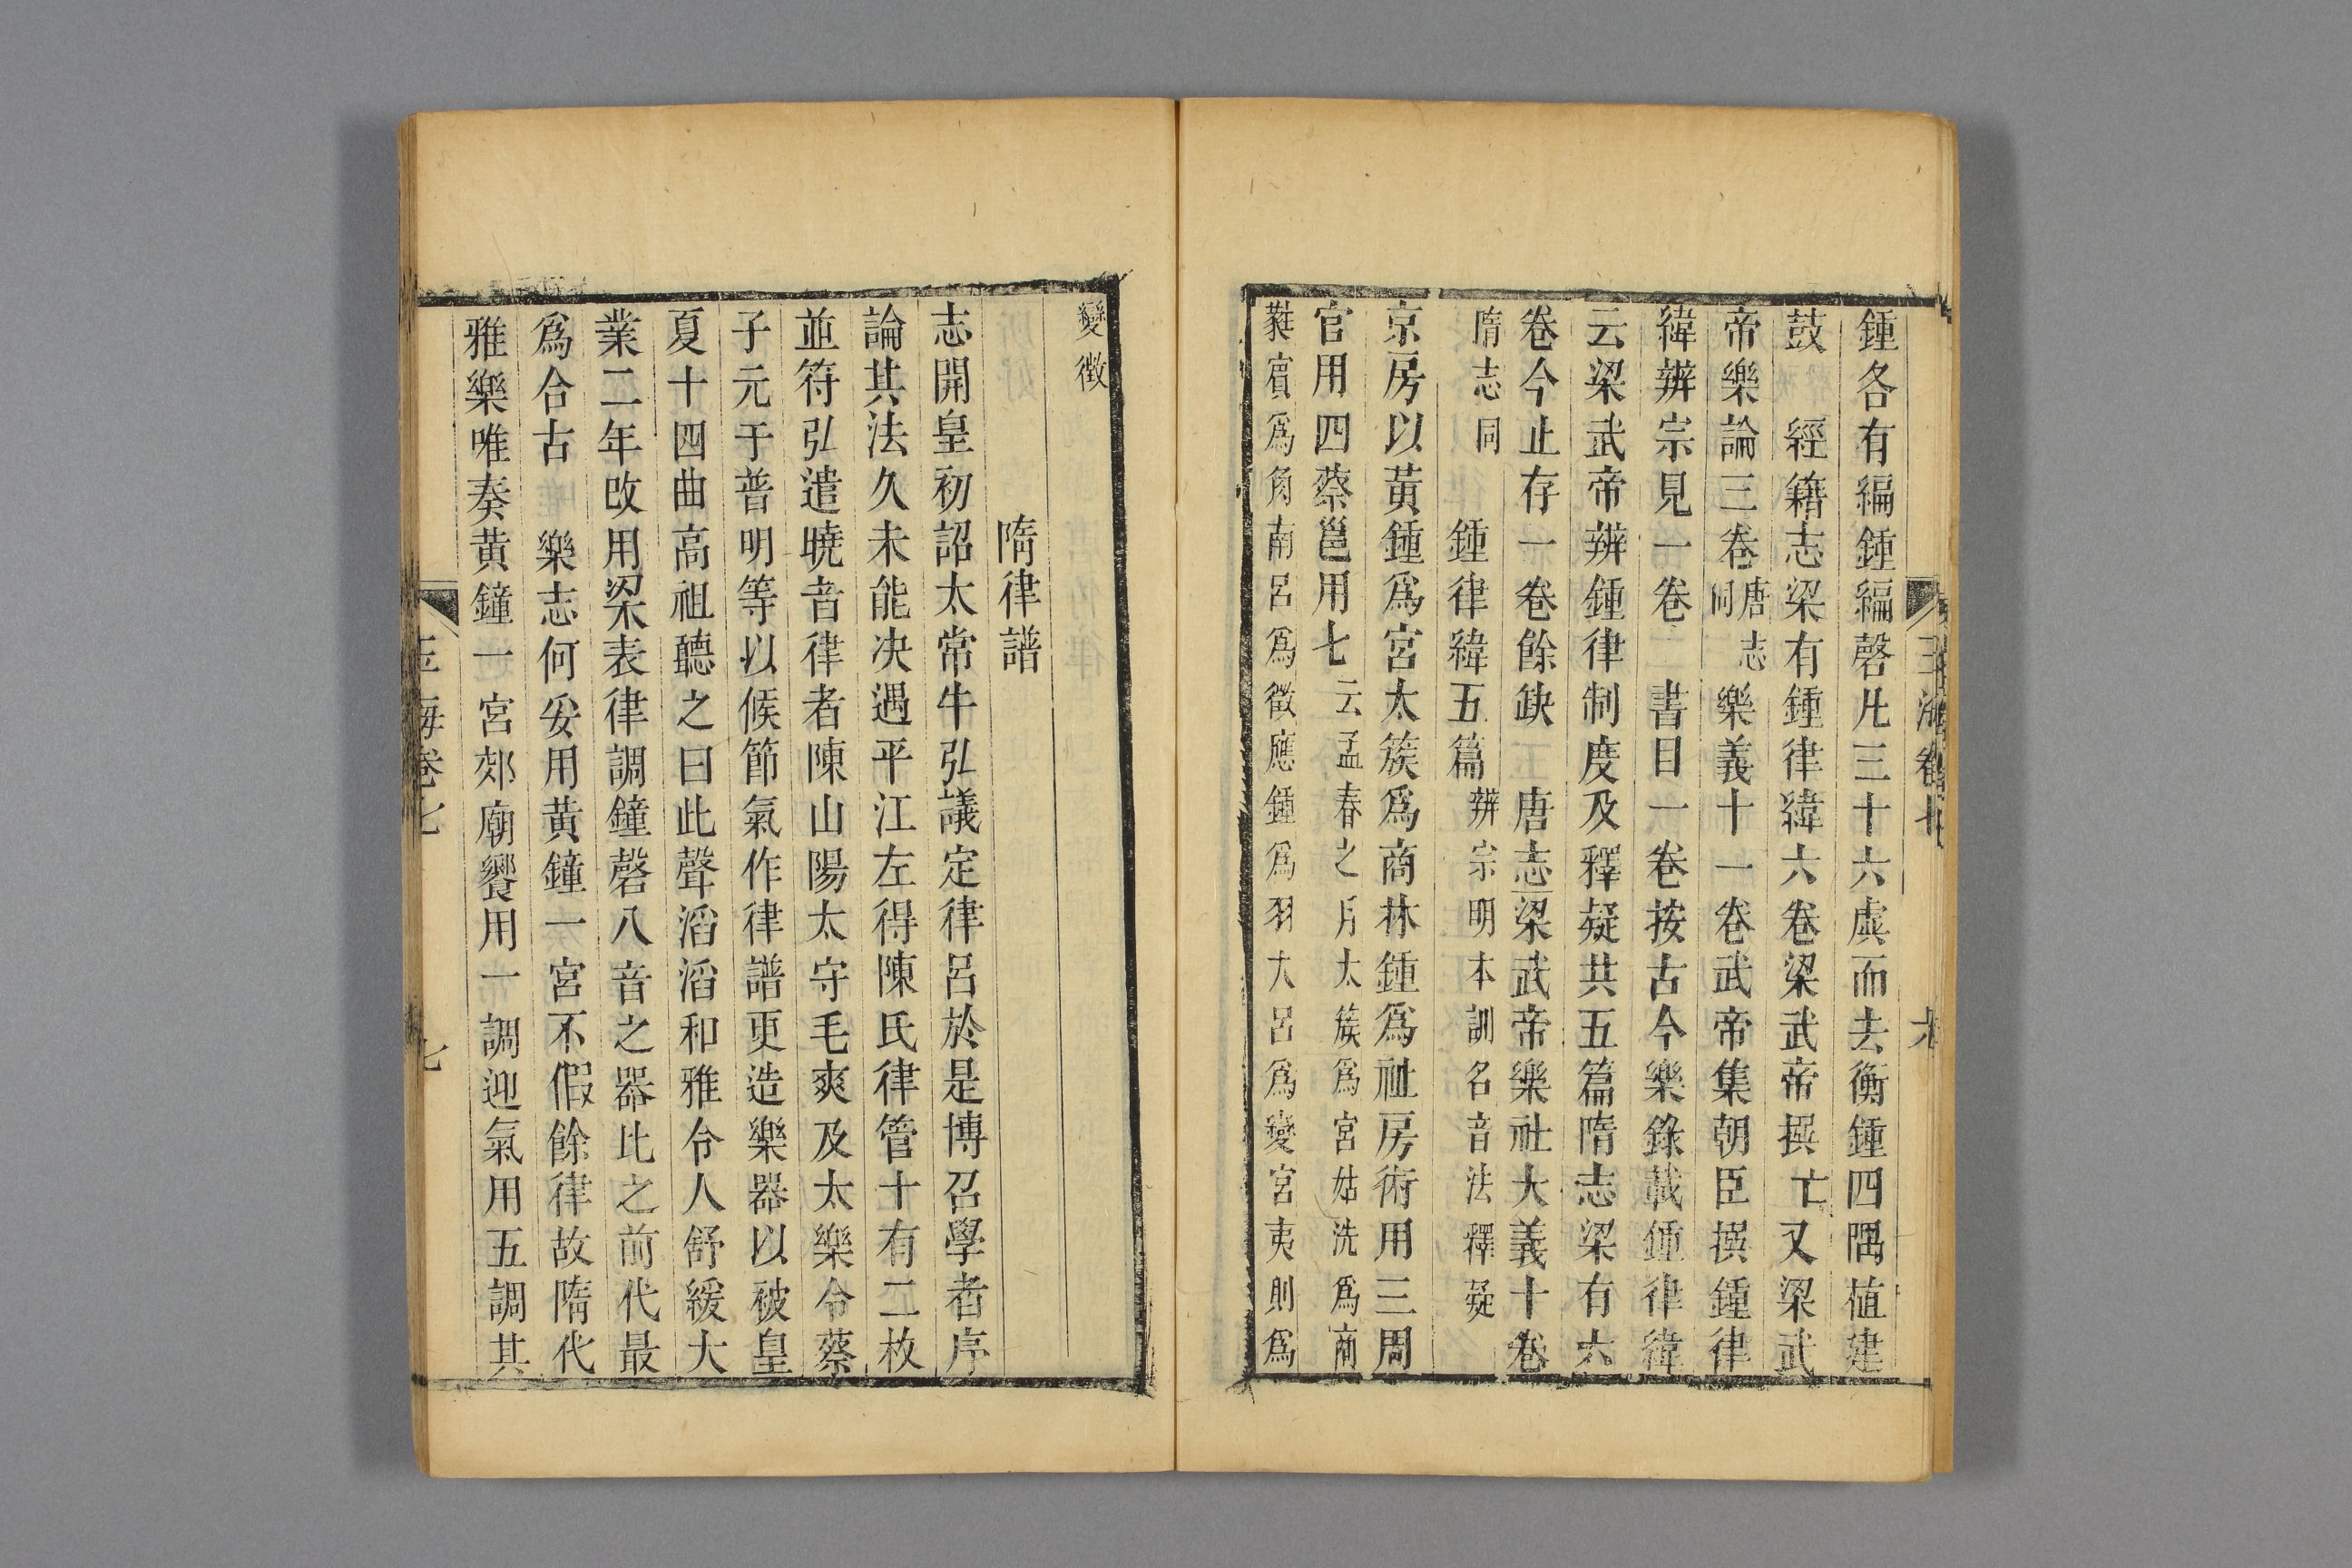 鍾各有編鍾編磬凡三十六虡而去衡鍾四隅植建
鼓　經籍志梁有鍾律緯六卷梁武帝撰亡又梁武
帝樂論三卷唐志同樂義十一卷武帝集朝臣撰鍾律
緯辨宗見一卷　書目一卷按古今樂錄載鍾律緯
云梁武帝辨鍾律制度及釋疑共五篇隋志梁有六
卷今止存一卷餘缺　唐志梁武帝樂社大義十卷
隋志同　鍾律緯五篇辨宗明本訓名音法釋疑
京房以黃鍾爲宮太簇爲商林鍾爲祉房術用三周
官用四蔡邕用七云孟春之月太簇爲宮姑洗爲商
蕤賓爲角南呂爲徵應鍾爲羽大呂爲變宮夷則爲
變徵
隋律譜
志開皇初詔太常牛弘議定律呂於是博召學者序
論其法久未能決遇平江左得陳氏律管十有二枚
並符弘遣曉音律者陳山陽太守毛爽及太樂令蔡
子元于普明等以候節氣作律譜更造樂器以被皇
夏十四曲高祖聽之曰此聲滔滔和雅令人舒緩大
業二年改用梁表律調鐘磬八音之器比之前代最
爲合古　樂志何妥用黃鐘一宮不假餘律故隋代
雅樂唯奏黃鐘一宮郊廟饗用一調迎氣用五調其
玉海卷七
七